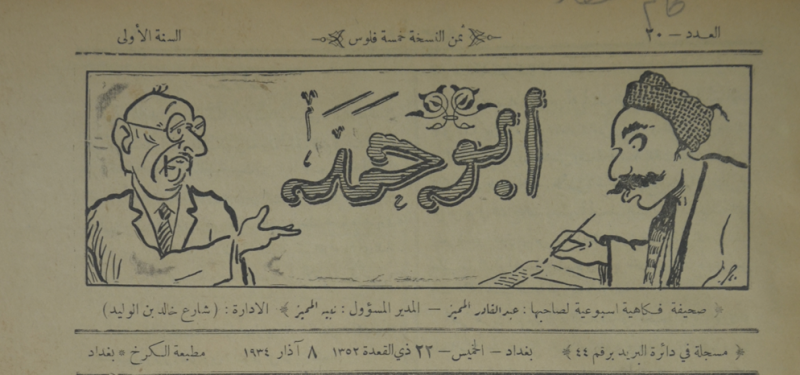 العدد — ٣٠ ثمن النسخة خمسة فلوس السنة الأولى
أبو حمد
صحيفة فكاهية اسبوعية لصاحبها : عبدالقادر المميز — المدير المسؤول : نبيه المميز الادارة : (شارع خالد بن الوليد)
مسجلة في دائرة البريد برقم ٤٤ بغداد — الخميس — ٢٢ ذي القعدة ١٣٥٢ ٨ آذار ١٩٣٤ مطبعة الكرخ * بغداد